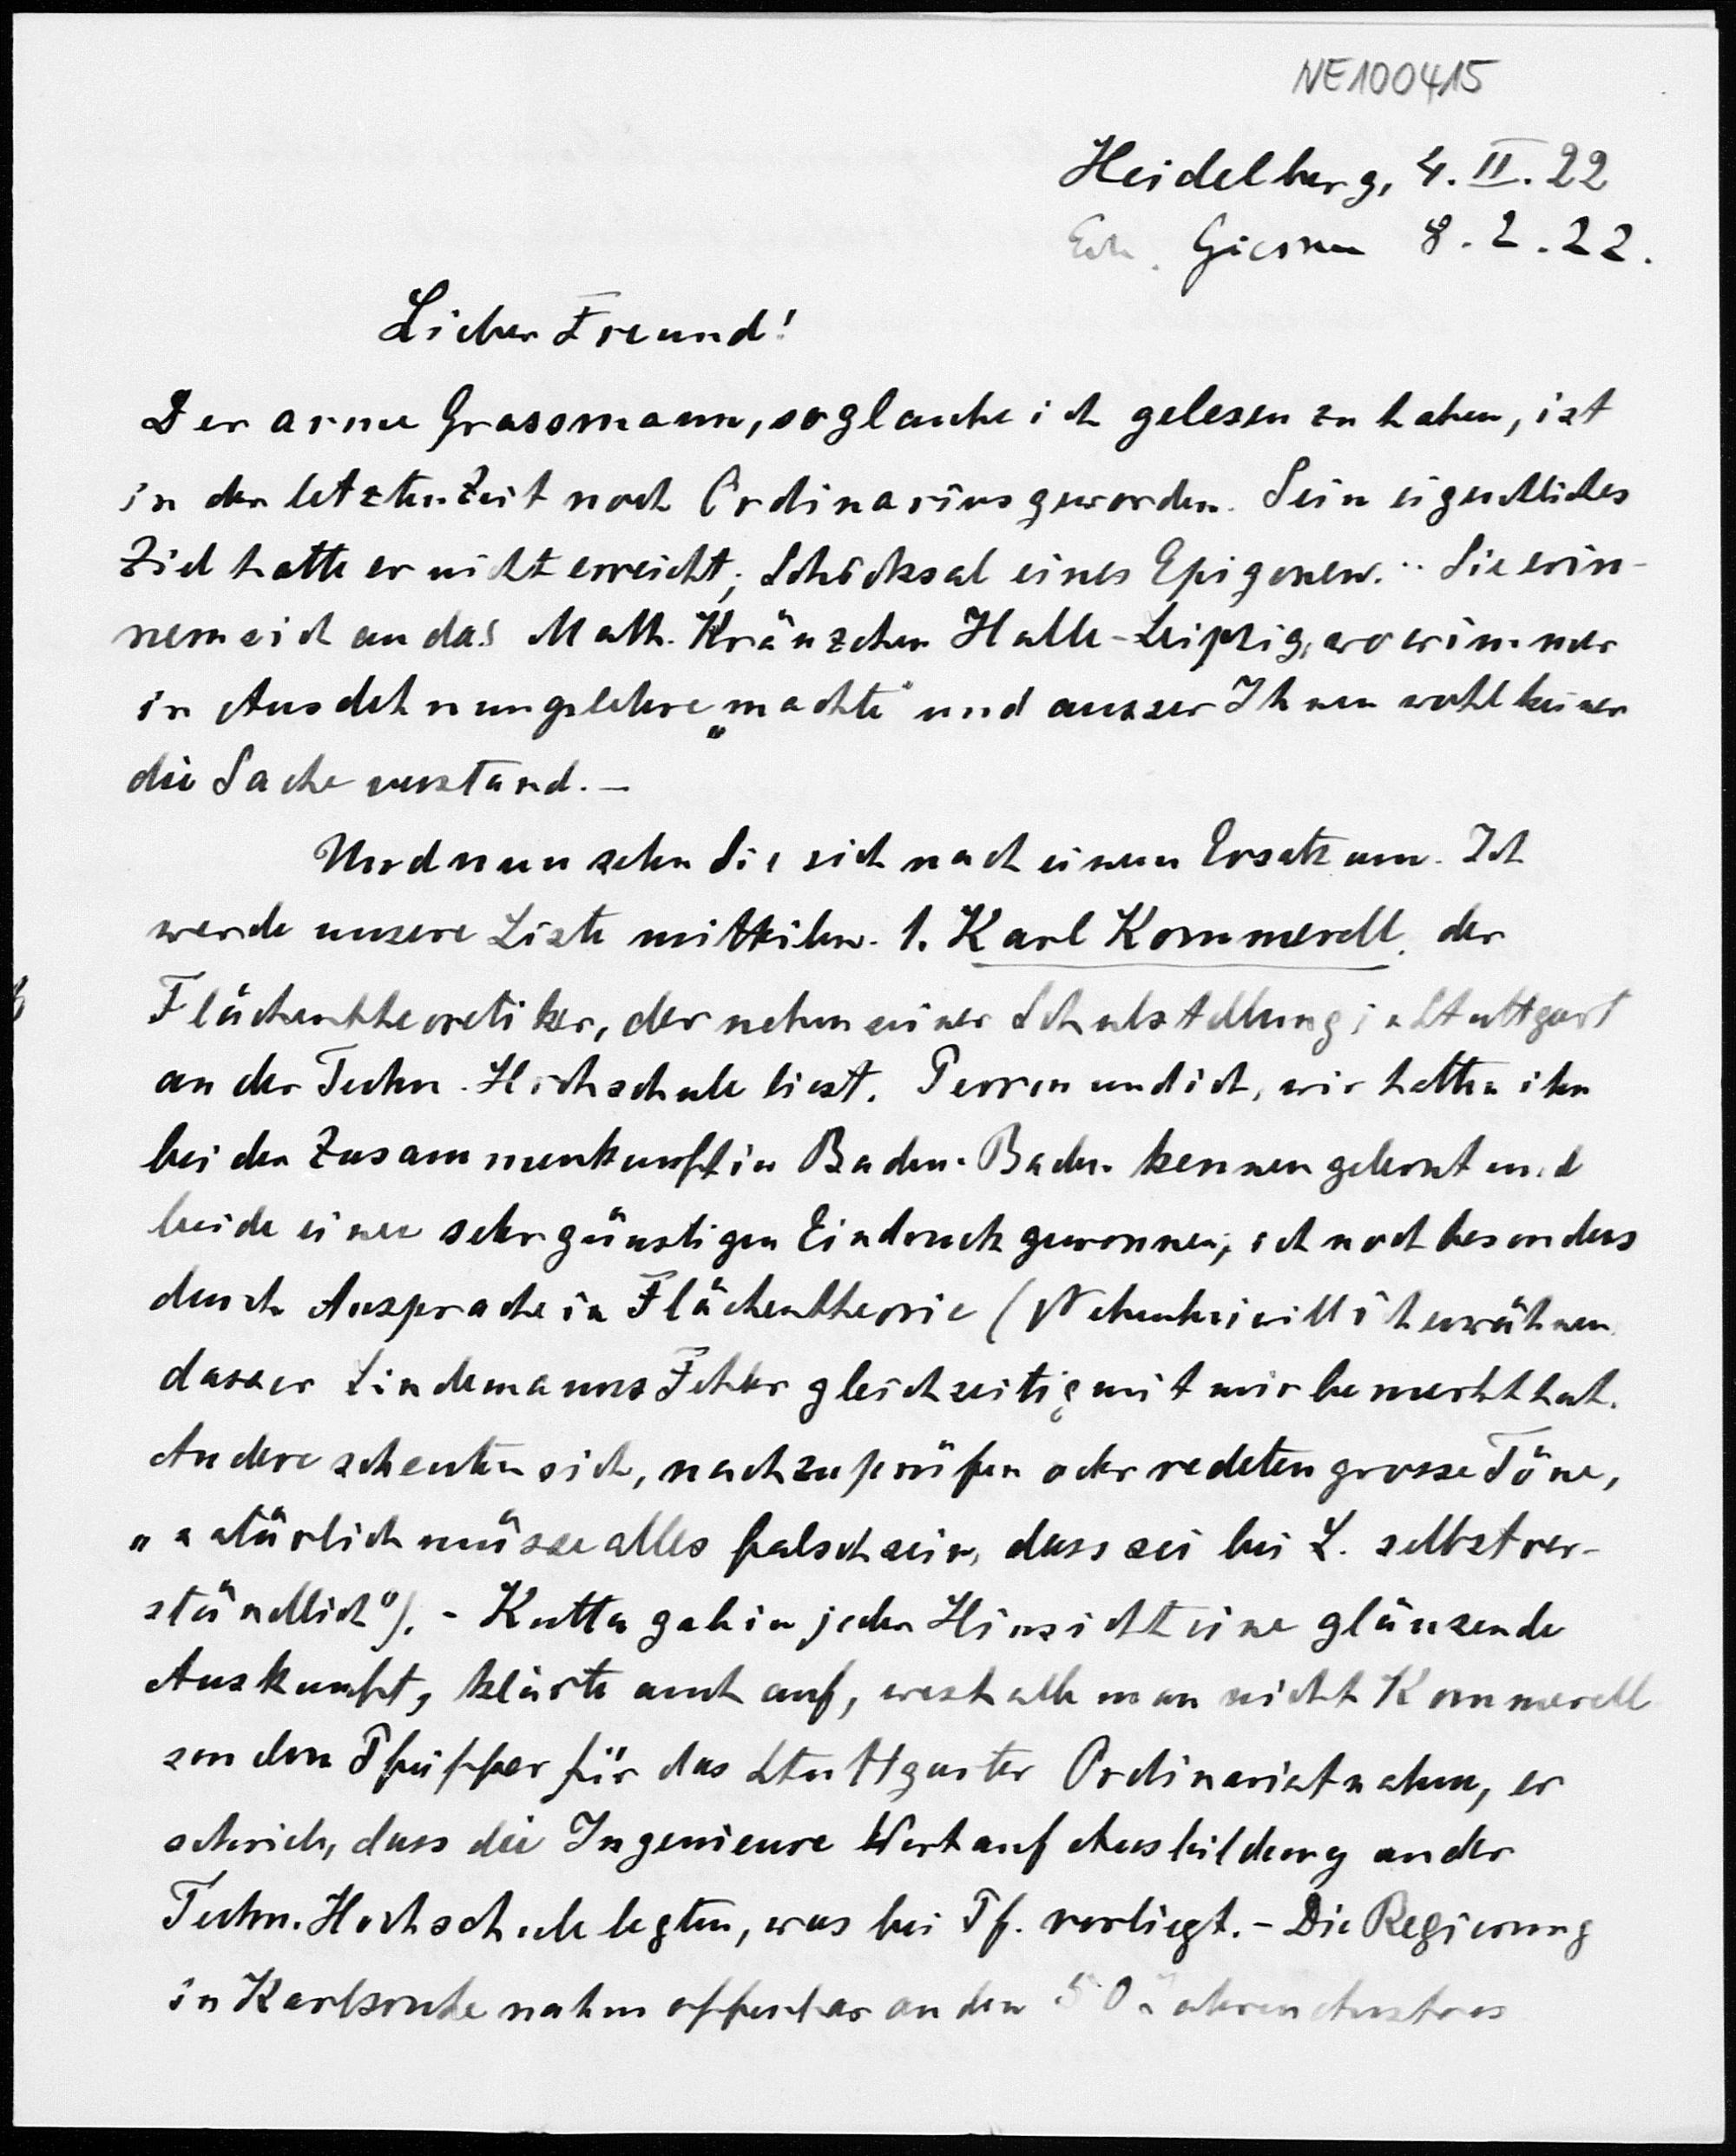 NE100415
Heidelberg, 4. II. 22
Giessen 8. 2. 22.
Lieber Freund!
Der arme Grassmann, so glaube ich gelesen zu haben, ist
in der letzten Zeit noch Ordinarius geworden. Sein eigentliches
Ziel hatte er nicht erreicht; Schicksal eines Epigonen. Sie erin-
nern sich an das Math. Kränzchen Halle-Leipzig, wo er immer
in Ausdehnungslehre „machte" und ausser Ihnen wohl keiner
die Sache verstand. –
Und nun sehen Sie sich nach einem Ersatz um. Ich
werde unsere Liste mitteilen. 1. Karl Kommerell, der
Flächentheoretiker, der neben einer Schulstellung in Stuttgart
an der Techn. Hochschule liest. Perron und ich, wir hatten ihn
bei der Zusammenkunft in Baden-Baden kennen gelernt und
beide einen sehr günstigen Eindruck gewonnen, ich noch besonders
durch Aussprache in Flächentheorie (Nebenbei will ich erwähnen
dass er Lindemanns Fehler gleichzeitig mit mir bemerkt hat.
Andere scheuten sich, nachzuprüfen oder redeten grosse Töne,
„natürlich müsse alles falsch sein, dass sei bei L. selbstver-
ständlich"). – Kutta gab in jeder Hinsicht eine glänzende
Auskunft, klärte auch auf, weshalb man nicht Kommerell
sondern Pfeiffer für das Stuttgarter Ordinariat nahm, er
schrieb, dass die Ingenieure Wert auf Ausbildung an der
Techn. Hochschule legten, was bei Pf. vorliegt. – Die Regierung
in Karlsruhe nahm offenbar an den 50 Jahren Anstoss